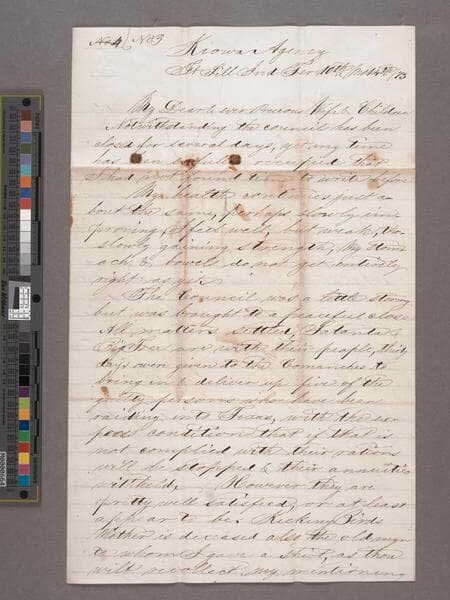 No 4 No 3
Kiowa Agency
Ft Sill Ind Ter 10th Mo 14th /73
My Dear & ever Precious Wife & Children
Notwithstanding the council has been
closed for several days, yet my time
has been so fully occupied that
I had not found time to write before
My health continues just a
bout the same, perhaps slowly im
proving, I feel well, but weak, tho
slowly gaining strength, my stom
ach & bowels do not get entirely
right as yet
The Council was a little stormy
but was brought to a peaceful close
All matters settled, Satanta &
Big Tree are with their people, thirty
days were given to the Comanches to
bring in & deliver up five of the
guilty persons who have been
raiding into Texas, with the ex
press condition that if that is
not complied with their rations
will be stopped & their annuities
withheld, However they are
pretty well satisfied, or at least
appear to be. Kicking Birds
Mother is deceased also the old man
to whom I gave a shirt, as thou
wilt recollect my mentioning